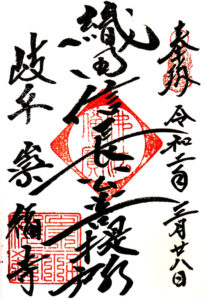 奉拝 令和二年三月廿八日
織田信長菩提所
岐阜 崇福寺